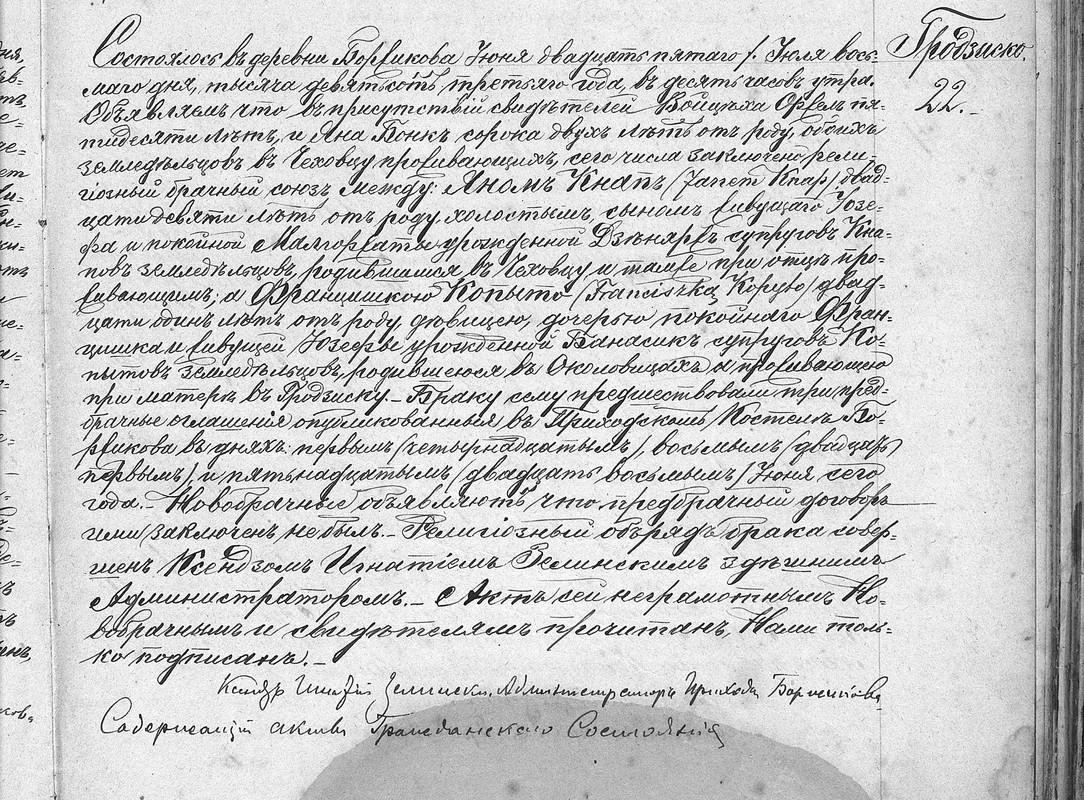 Гродзиско.
22.
Состоялось въ деревни Боржикова Іюня двадцать пятаго /. Іюля вось-
маго дня, тысяча девятьсотъ третьяго года, въ десять часовъ утра.
Объявляемъ что въ присутствій свидѣтелей Войцѣха Оржел пя-
тидесяти лѣтъ, и Яна Бонкъ сорока двухъ лѣтъ отъ роду, обоихъ
земледѣльцовъ въ Чеховцу проживающихъ, сего числа заключено рели-
гіозный брачный союзъ между: Яномъ Кнапъ /Janem Knap/, двад-
цати девяти лѣтъ отъ роду, холостымъ, сыномъ живущаго Іозе-
фа и покойной Малгоржаты урожденной Дзѣняржъ супруговъ Кна-
повъ земледѣльцовъ, родившимся въ Чеховцу и тамже при отцѣ про-
живающимъ; а Францишкою Копыто /Franciszką Kopyto/ двад-
цати одинъ лѣтъ отъ роду, дѣвицею, дочерью покойнаго Фран-
цишка и живущей Іозефы урожденной Банасикъ супруговъ Ко-
пытовъ земледѣльцовъ, родившеюся въ Околовицахъ а проживающею
при матери въ Гродзиску. – Браку сему предшествовали три пред-
брачные оглашенія опубликованныя въ Приходскомъ Костелѣ Бо-
ржикова въ дняхъ: первымъ /четырнадцатымъ/, восьмымъ /двадцать
первымъ/, и пятьнадцатымъ /двадцать восьмымъ/ Іюня сего
года. – Новобрачные объявляютъ что предбрачный договоръ
ими заключенъ не былъ. – Религіозный обърядъ брака совер-
шенъ Ксендзомъ Игнатіемъ Зелинскимъ здѣшнимъ
Администраторомъ. – Актъ сей неграмотнымъ Но-
вобрачнымъ и свидѣтелямъ прочитанъ, Нами толь-
ко подписанъ. –
Ксендзъ Игнатій Зелински, Администраторъ Прихода Боржикова
Содержащій акты Гражданскаго Состоянія